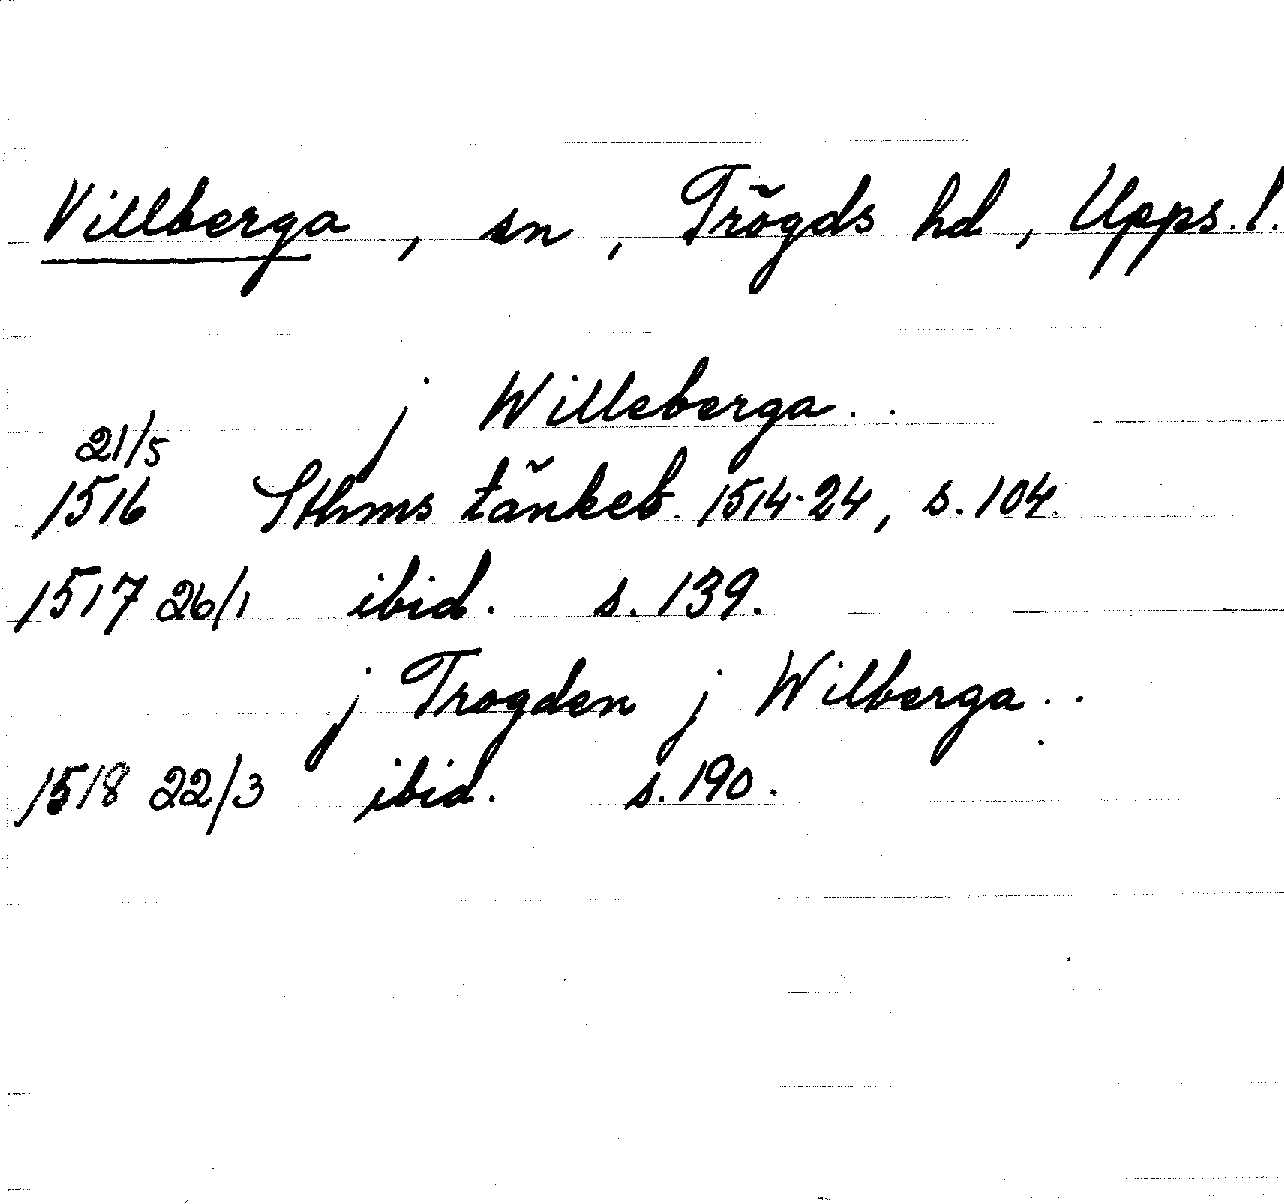 Villberga, sn, Trögds hd, Upps. l.
j Willeberga..
21/5
1516 Sthms tänkeb. 1514-24, s. 104.
1517 26/1 ibid. s. 139.
j Trogden j Wilberga..
1518 22/3 ibid. s. 190.